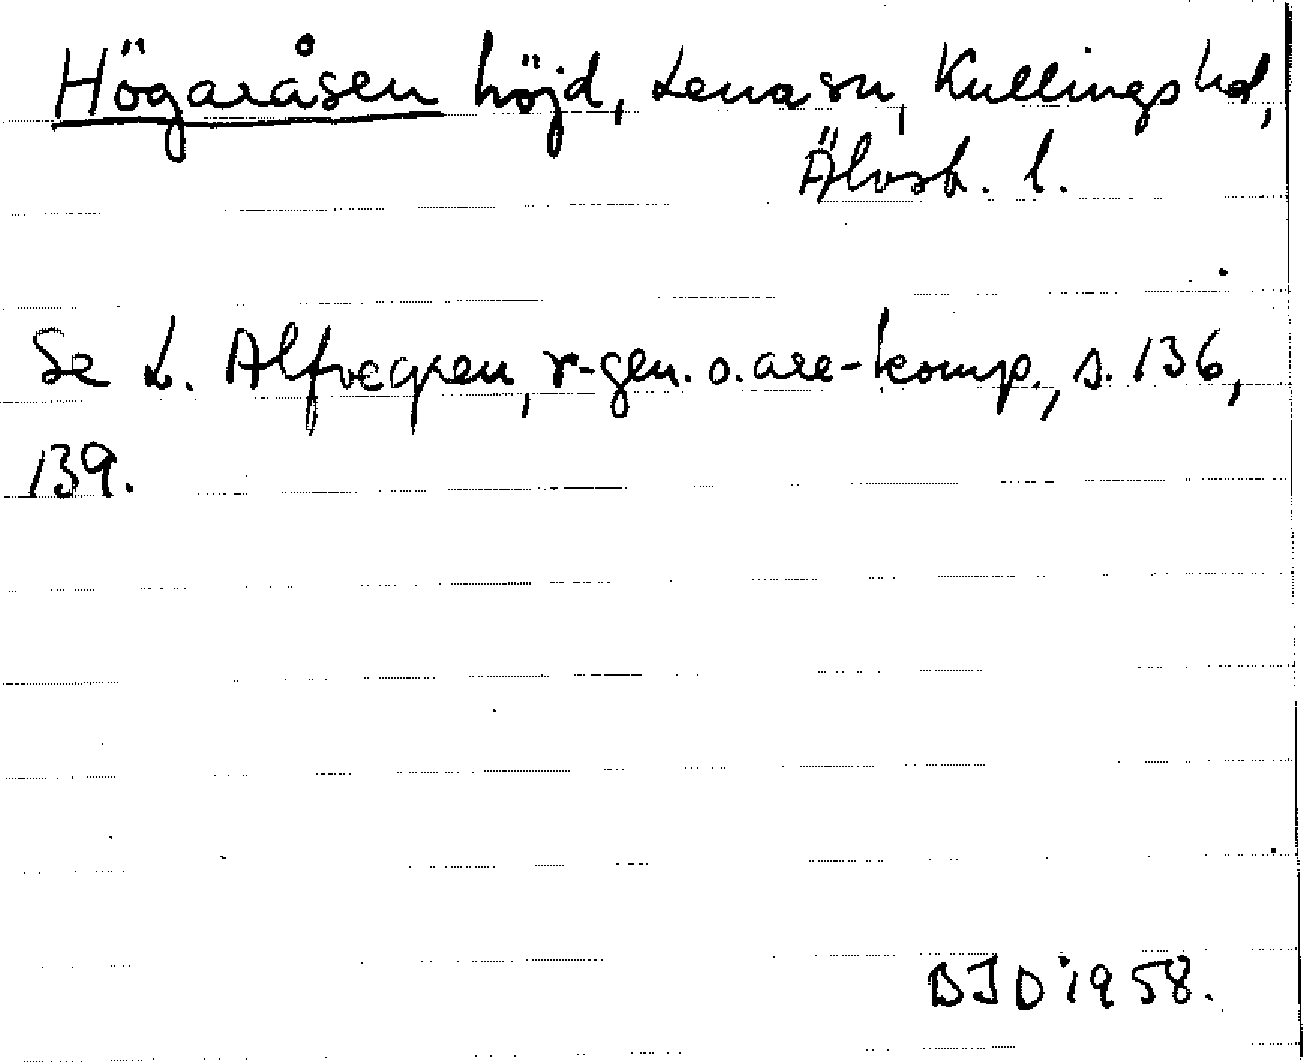 Högaråsen höjd, Lena sn, Kullings hd,
Älvsb. l.
Se L. Alfvegren, r-gen. o. are-komp., s. 136,
139.
BJD 1958.